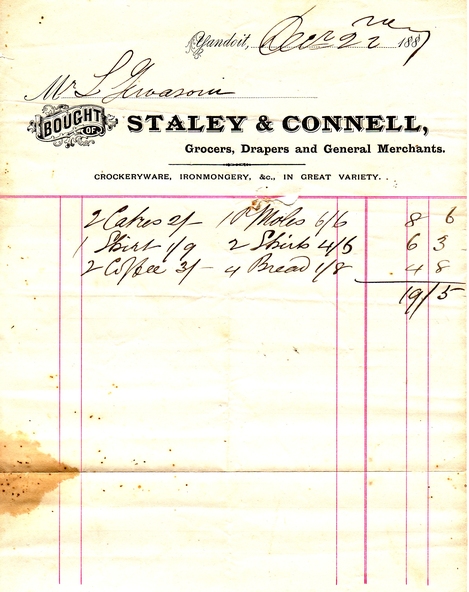 Yandoit, Decr 22nd 1887
Mr L Gervasoni
BOUGHT OF
STALEY & CONNELL,
Grocers, Drapers and General Merchants.
CROCKERYWARE, IRONMONGERY, &c., IN GREAT VARIETY.
2 Cakes 2/- 10 Moles 6/6 8 6
1 Shirt 1/9 2 Shirts 4/6 6 3
2 Coffee 3/- 4 Bread 1/8 4 8
19/5